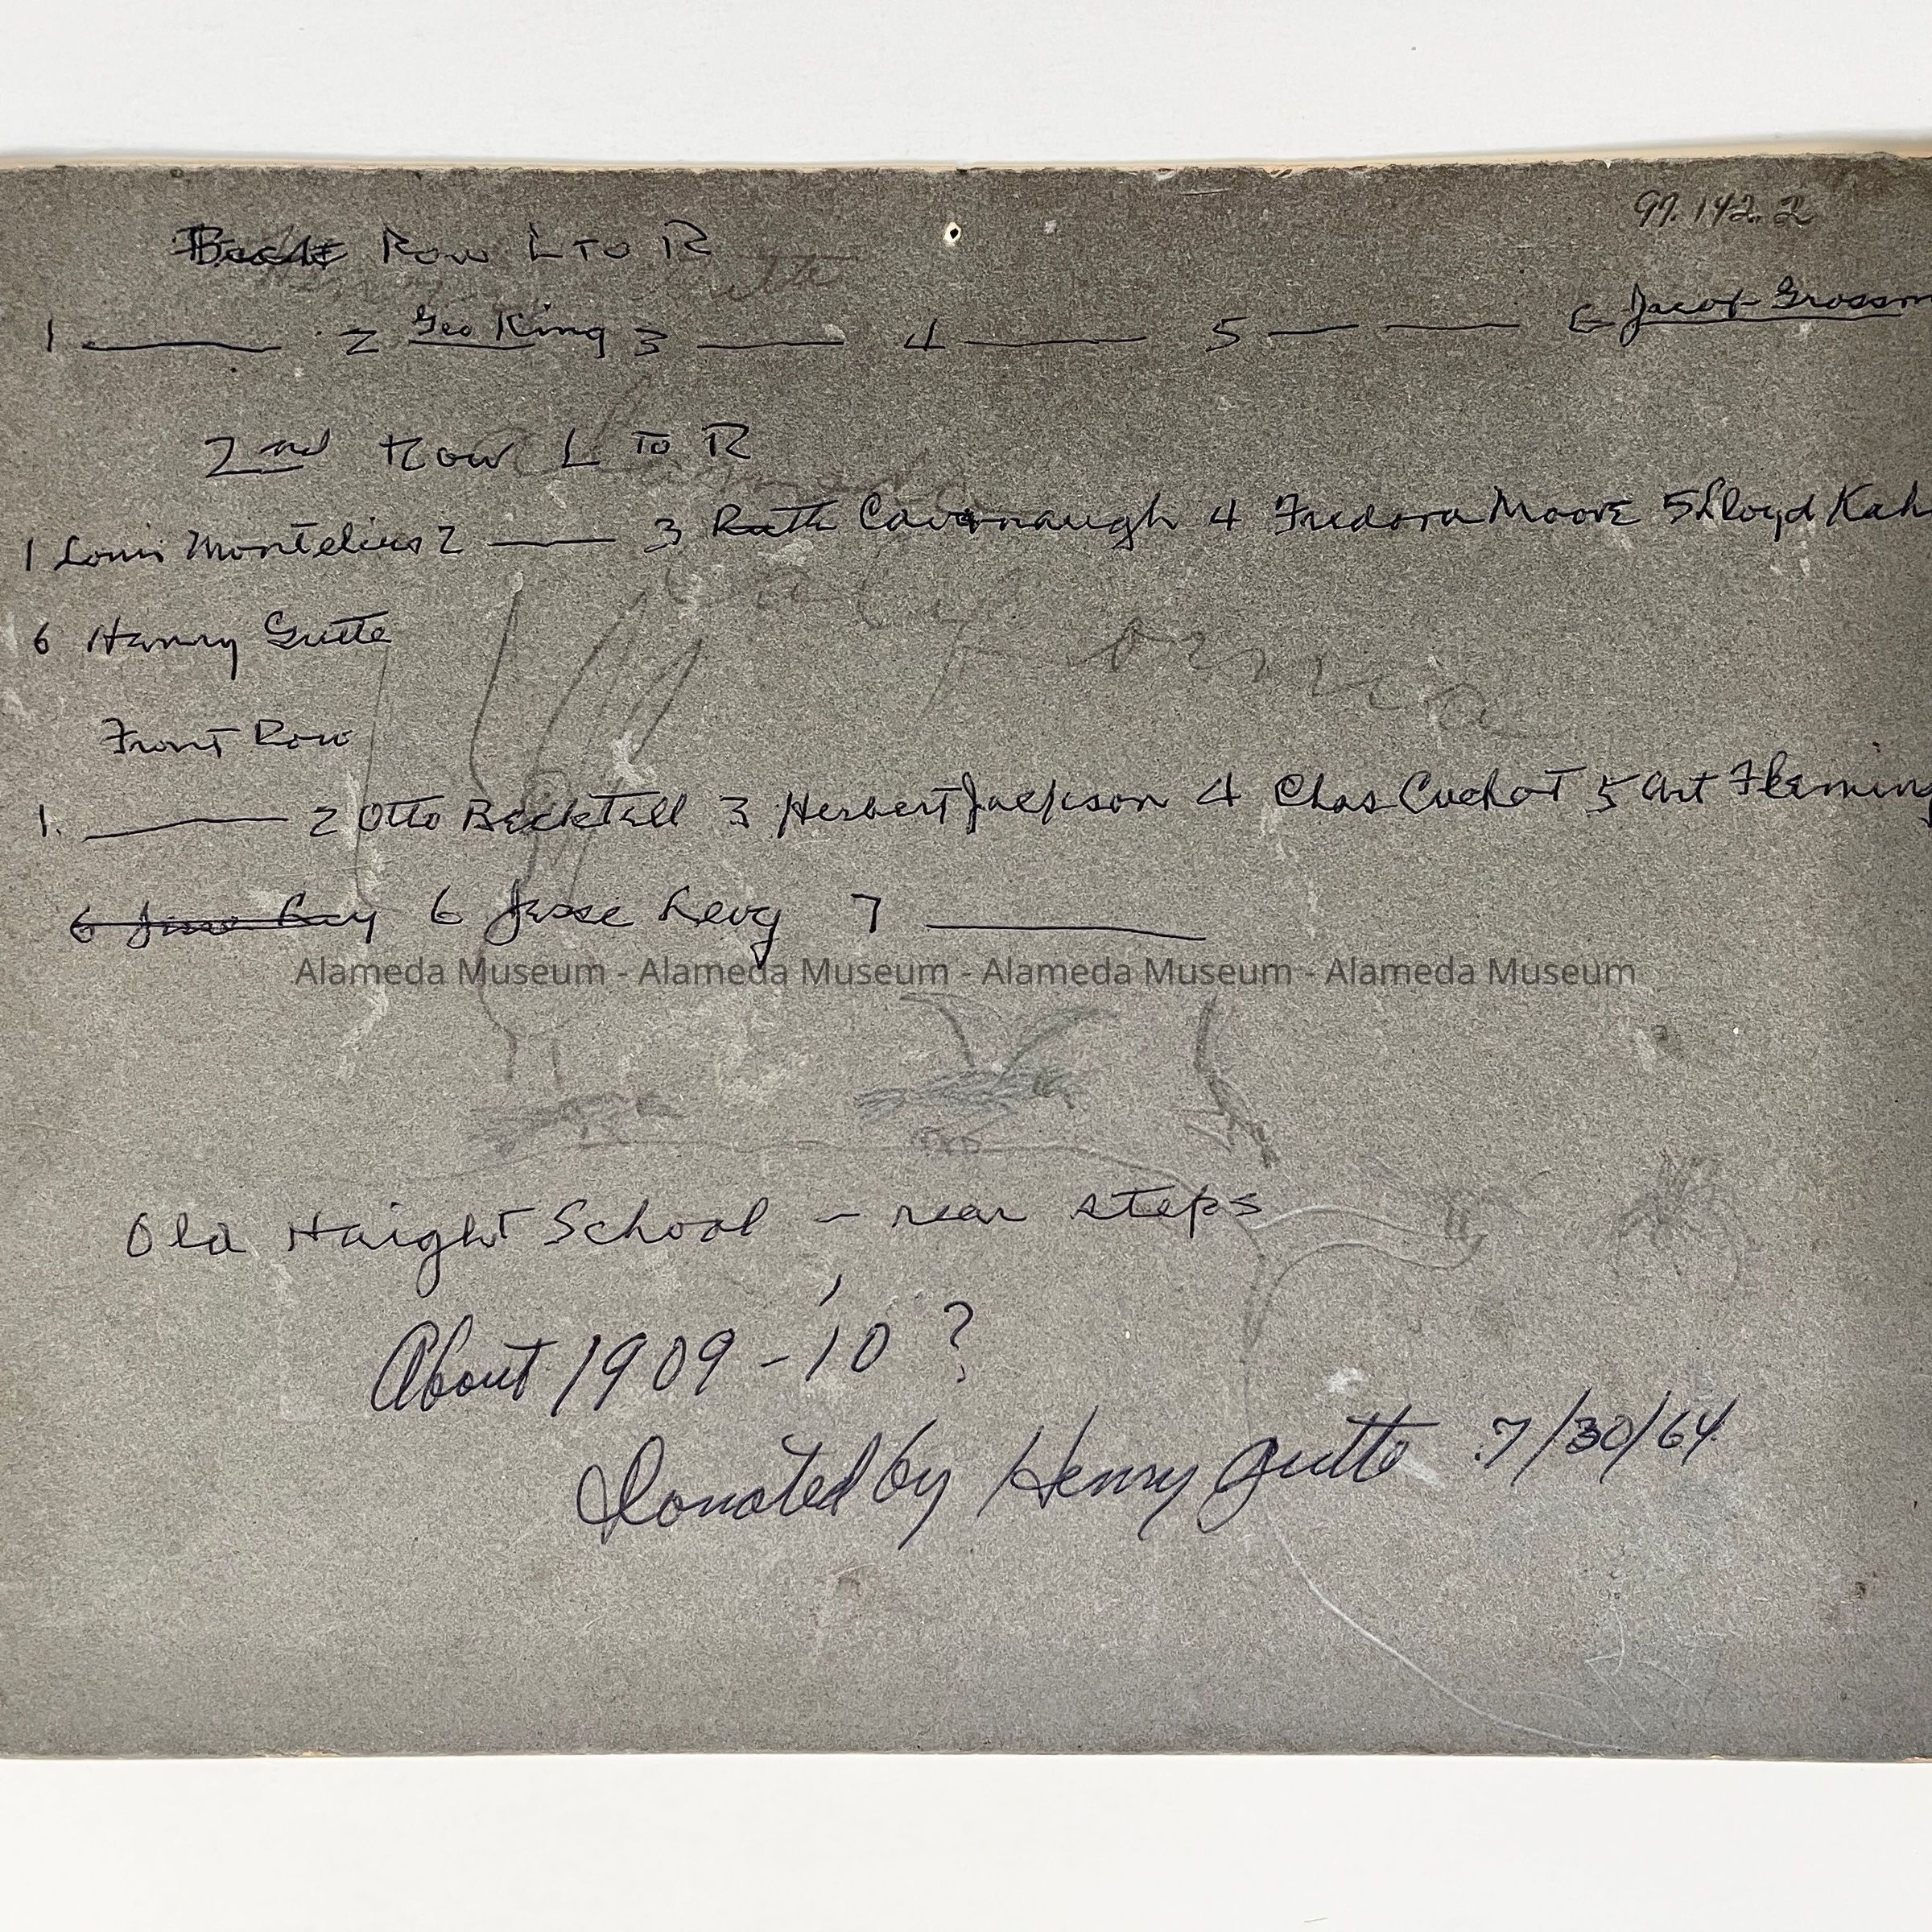 97.142.2
Back Row L To R
1 ______ 2 Geo King 3 ______ 4 ______ 5 ___ ____ 6 Jacob Grossm
2nd Row L To R
1 Louis Montelius 2 ____ 3 Ruth Cavanaugh 4 Fredora Moore 5 Lloyd Kah
6 Henry Gutte
Front Row
1. ______ 2 Otto Becktell 3 Herbert Jackson 4 Chas Cuchot 5 Art Fleming
6 6 Jesse Levy 7 ______
Alameda Museum - Alameda Museum - Alameda Museum - Alameda Museum
California
Old Haight School - rear steps
About 1909-'10 ?
Donated by Henry Gutte 7/30/64